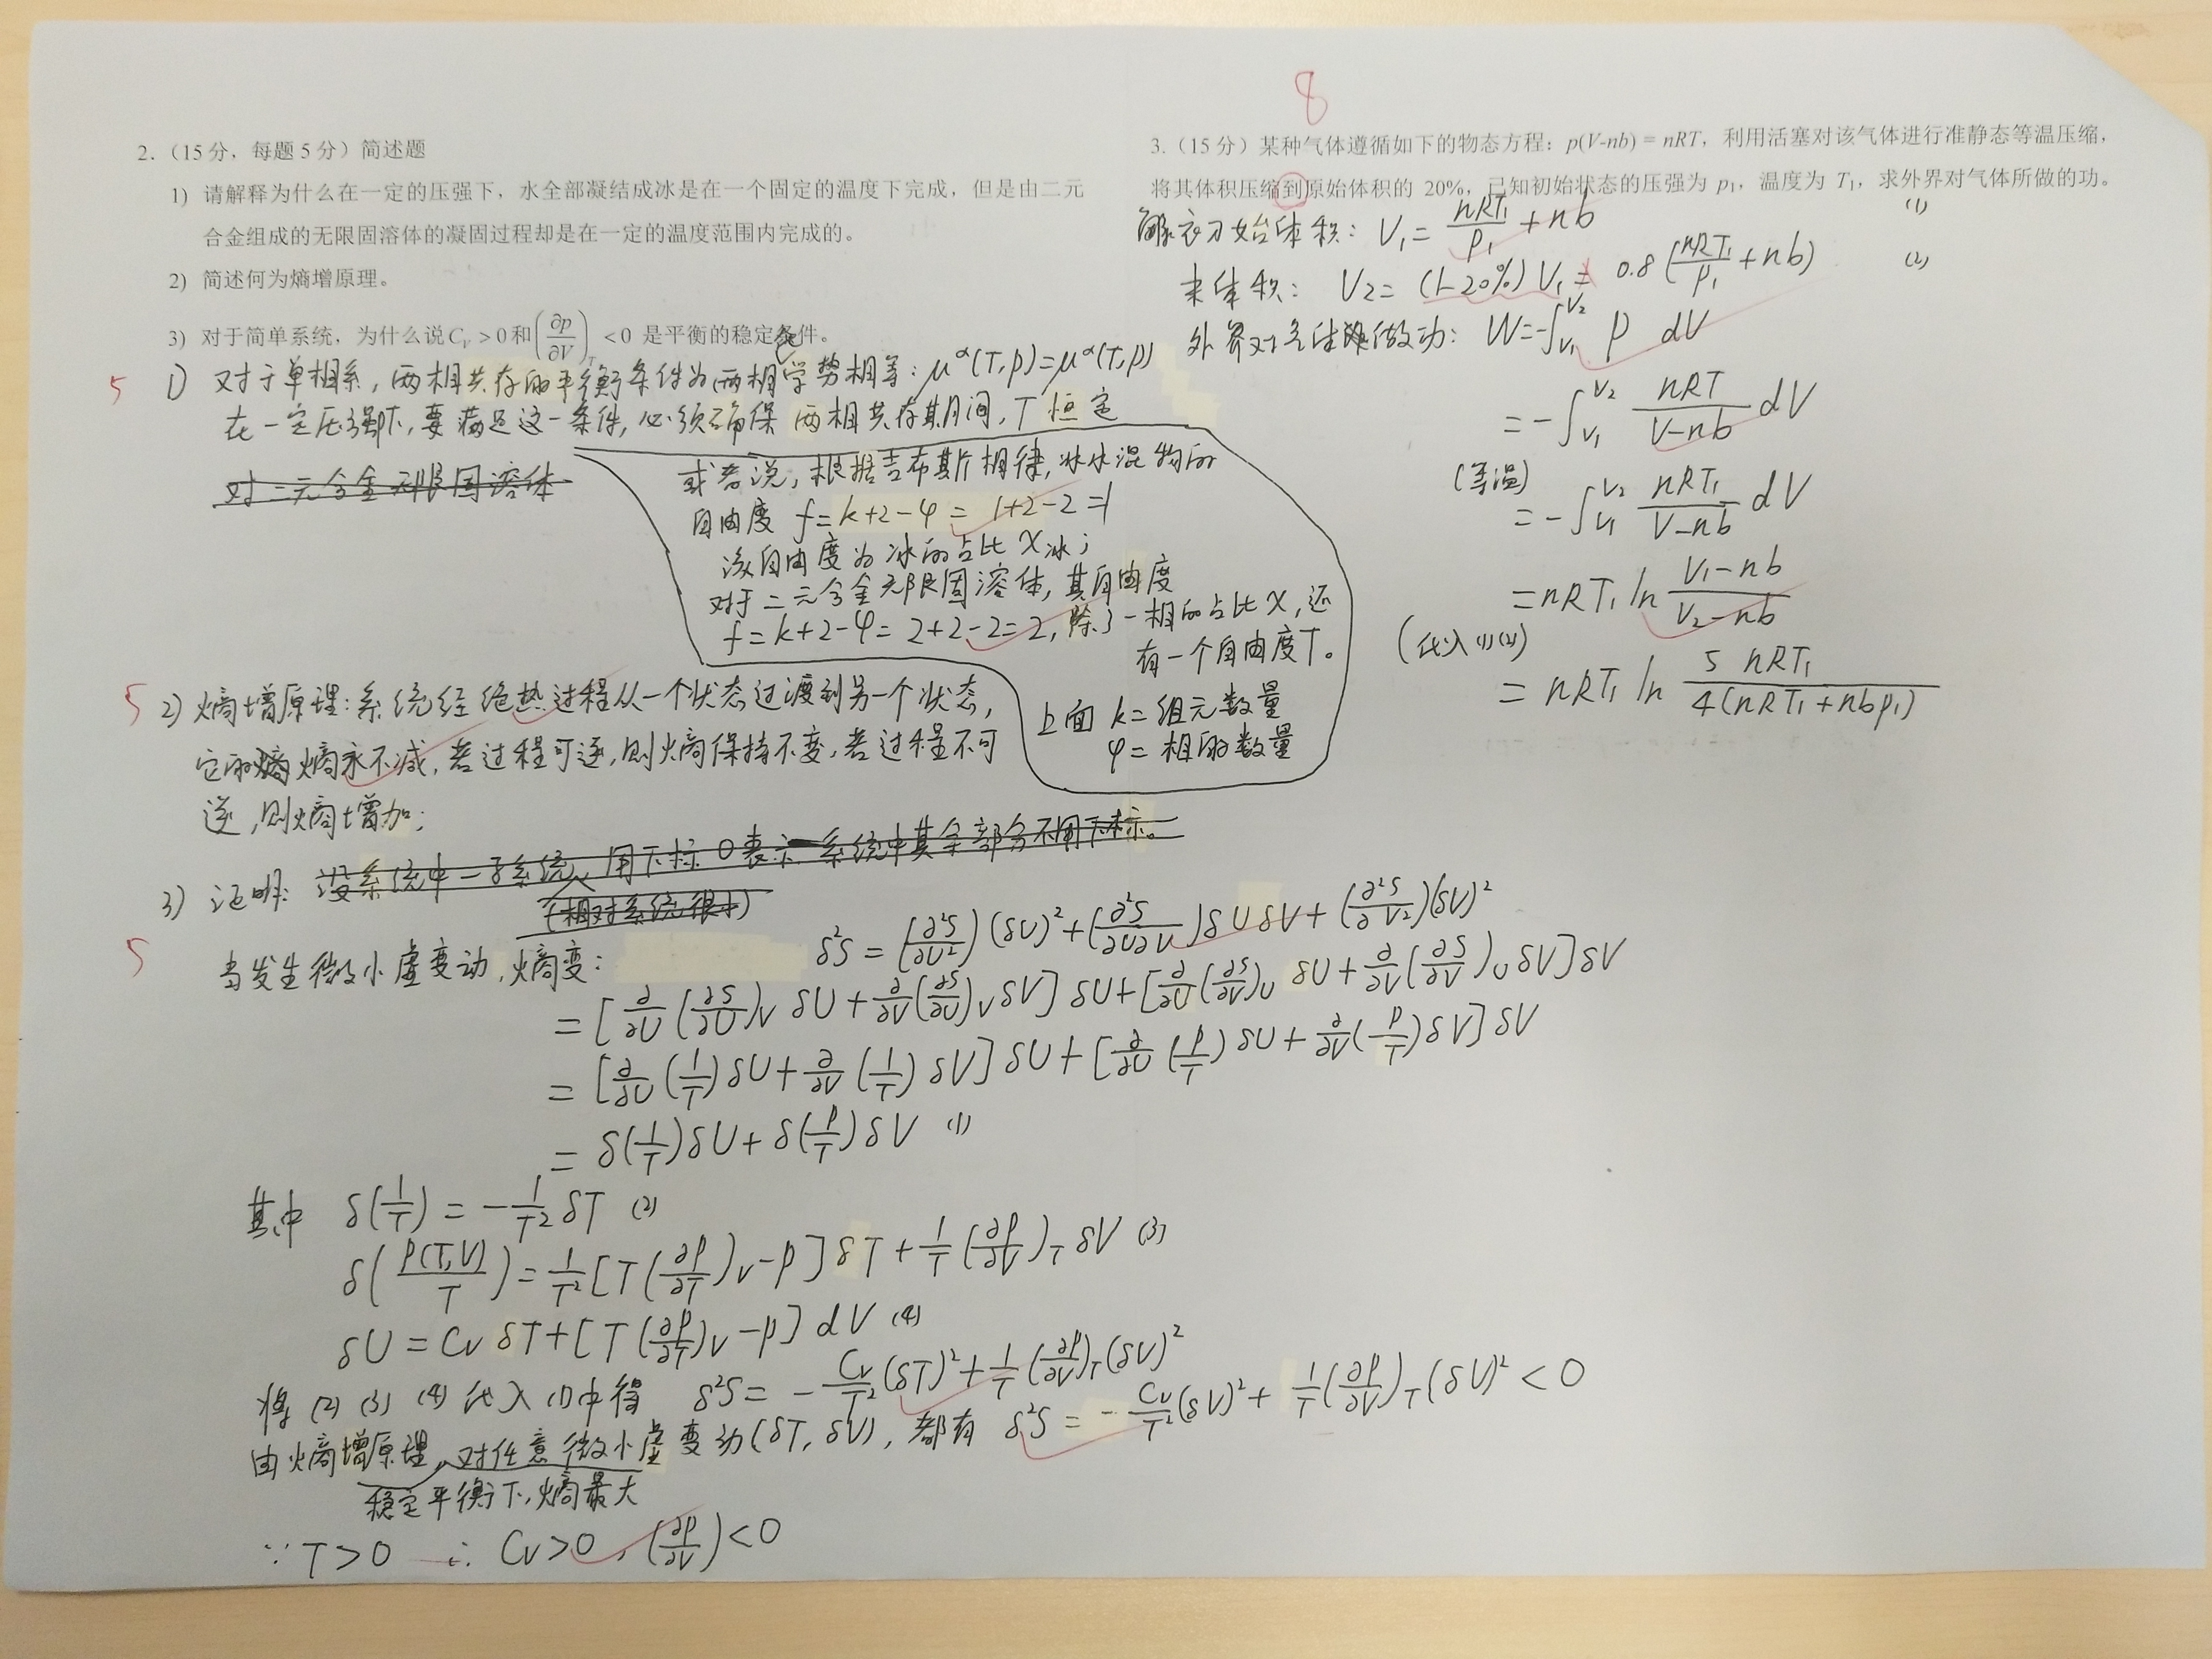 2.（15分，每题5分）简述题
1） 请解释为什么在一定的压强下，水全部凝结成冰是在一个固定的温度下完成，但是由二元
合金组成的无限固溶体的凝固过程却是在一定的温度范围内完成的。
2） 简述何为熵增原理。
3） 对于简单系统，为什么说 C_V > 0 和 (∂p/∂V)_T < 0 是平衡的稳定条件。
5
1) 对于单相系，两相共存的平衡条件为两相化学势相等：μ^α(T,p)=μ^α(T,p)
在一定压强下，要满足这一条件，必须确保两相共存期间，T恒定
对二元合金无限固溶体
或者说，根据吉布斯相律，冰水混物的
自由度 f=k+2-φ= 1+2-2=1
该自由度为冰的占比X冰；
对于二元合金无限固溶体，其自由度
f=k+2-φ= 2+2-2=2，除了一相的占比X，还
有一个自由度T。
上面 k=组元数量
φ=相的数量
5
2) 熵增原理：系统经绝热过程从一个状态过渡到另一个状态，
它的熵永不减，若过程可逆，则熵保持不变，若过程不可
逆，则熵增加；
3) 证明：设系统中一子系统，用下标0表示 系统中其余部分不用下标。
(相对系统很小)
5
当发生微小虚变动，熵变：
δ²S = (∂²S/∂U²)(δU)²+(∂²S/∂U∂V)δUδV+(∂²S/∂V²)(δV)²
= [∂/∂U(∂S/∂U)_V δU+∂/∂V(∂S/∂U)_V δV]δU+[∂/∂U(∂S/∂V)_U δU+∂/∂V(∂S/∂V)_U δV]δV
= [∂/∂U(1/T)δU+∂/∂V(1/T)δV]δU+[∂/∂U(p/T)δU+∂/∂V(p/T)δV]δV
= δ(1/T)δU+δ(p/T)δV (1)
其中 δ(1/T) = -1/T² δT (2)
δ(p(T,V)/T)=1/T²[T(∂p/∂T)_V-p]δT+1/T(∂p/∂V)_T δV (3)
δU = C_V δT+[T(∂p/∂T)_V-p]dV (4)
将(2)(3)(4)代入(1)中得 δ²S= -C_V/T²(δT)²+1/T(∂p/∂V)_T(δV)²
由熵增原理，对任意微小虚变动(δT,δV)，都有 δ²S = -C_V/T²(δV)²+1/T(∂p/∂V)_T(δV)²<0
稳定平衡下，熵最大
∵T>0 ∴ C_V>0，(∂p/∂V)<0
8
3.（15分）某种气体遵循如下的物态方程：p(V-nb) = nRT，利用活塞对该气体进行准静态等温压缩，
将其体积压缩到原始体积的 20%，已知初始状态的压强为 p₁，温度为 T₁，求外界对气体所做的功。
解：初始体积：V₁= nRT₁/p₁ + nb (1)
末体积：V₂= (1-20%)V₁= 0.8(nRT₁/p₁+nb) (2)
外界对气体做功：W=-∫_{V₁}^{V₂} p dV
= -∫_{V₁}^{V₂} nRT/(V-nb) dV
(等温)
= -∫_{V₁}^{V₂} nRT₁/(V-nb) dV
=nRT₁ ln (V₁-nb)/(V₂-nb)
(代入(1)(2))
= nRT₁ ln 5nRT₁/4(nRT₁+nbp₁)